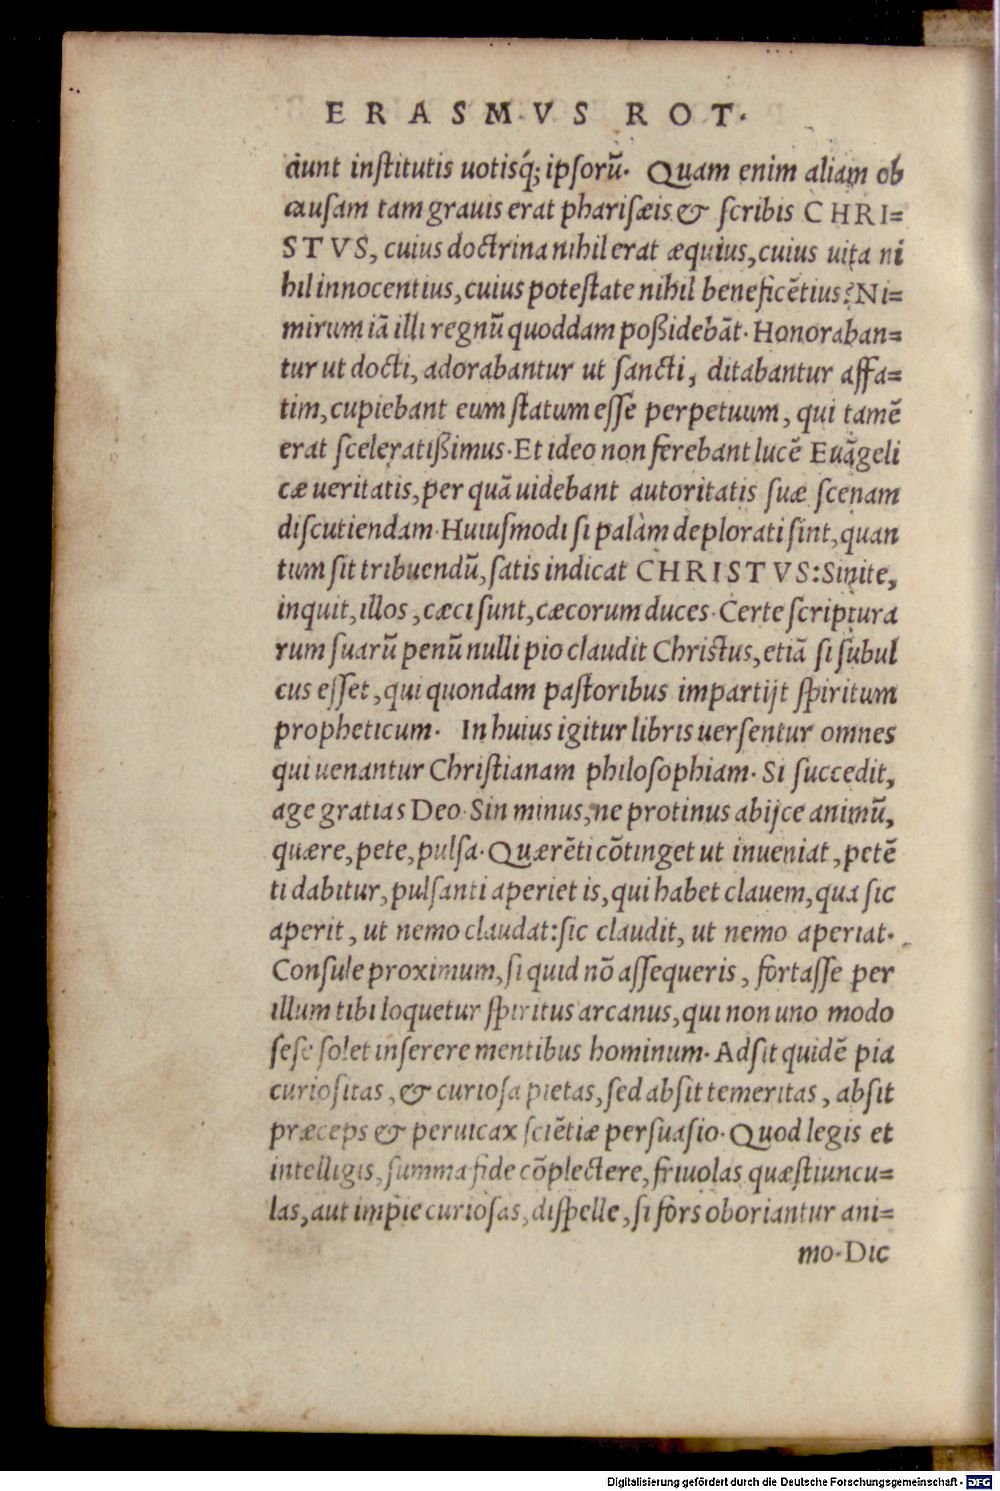 ERASMVS ROT.
ciunt institutis uotisq́; ipsorũ. Quam enim aliam ob
causam tam grauis erat pharisæis & scribis CHRI=
STVS, cuius doctrina nihil erat æquius, cuius uita ni
hil innocentius, cuius potestate nihil beneficẽtius? Ni=
mirum iã illi regnũ quoddam poßidebãt. Honoraban=
tur ut docti, adorabantur ut sancti, ditabantur affa=
tim, cupiebant eum statum esse perpetuum, qui tamẽ
erat sceleratißimus. Et ideo non ferebant lucẽ Euãgeli
cæ ueritatis, per quã uidebant autoritatis suæ scenam
discutiendam. Huiusmodi si palàm deplorati sint, quan
tum sit tribuendũ, satis indicat CHRISTVS: Sinite,
inquit, illos, cæci sunt, cæcorum duces. Certe scriptura
rum suarũ penũ nulli pio claudit Christus, etiã si subul
cus esset, qui quondam pastoribus impartijt spiritum
propheticum. In huius igitur libris uersentur omnes
qui uenantur Christianam philosophiam. Si succedit,
age gratias Deo. Sin minus, ne protinus abijce animũ,
quære, pete, pulsa. Quærẽti cõtinget ut inueniat, petẽ
ti dabitur, pulsanti aperiet is, qui habet clauem, qua sic
aperit, ut nemo claudat: sic claudit, ut nemo aperiat.
Consule proximum, si quid nõ assequeris, fortasse per
illum tibi loquetur spiritus arcanus, qui non uno modo
sese solet inserere mentibus hominum. Adsit quidẽ pia
curiositas, & curiosa pietas, sed absit temeritas, absit
præceps & peruicax sciẽtiæ persuasio. Quod legis et
intelligis, summa fide cõplectere, friuolas quæstiuncu=
las, aut impie curiosas, dispelle, si fors oboriantur ani=
mo. Dic
Digitalisierung gefördert durch die Deutsche Forschungsgemeinschaft - DFG